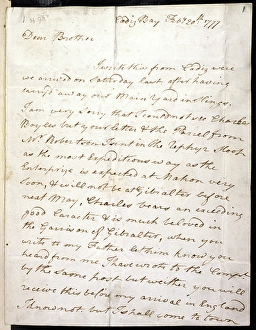 1
Cadiz Bay Feb 20th 1777
Dear Brother
I write this from Cadiz were
we arrived on Saturday last after having
carry'd away our Main yard in Slings.
I am very Sorry that I could not see Charles
Boyles but your letter & the Parcel from
Mr. Robertson I sent in the Zephyr Sloop
as the most Expeditious way as the
Enterprize is expected at Mahon very
Soon, & will not be at Gibralter before
next May, Charles bears an exceeding
good Caracter & is much beloved in
the Garrison of Gibralter, when you
write to my Father let him know you
heard from me I have wrote to the Compt
by the Same post but wether you will
receive this before my arrival in England
I know not but I shall come to Town